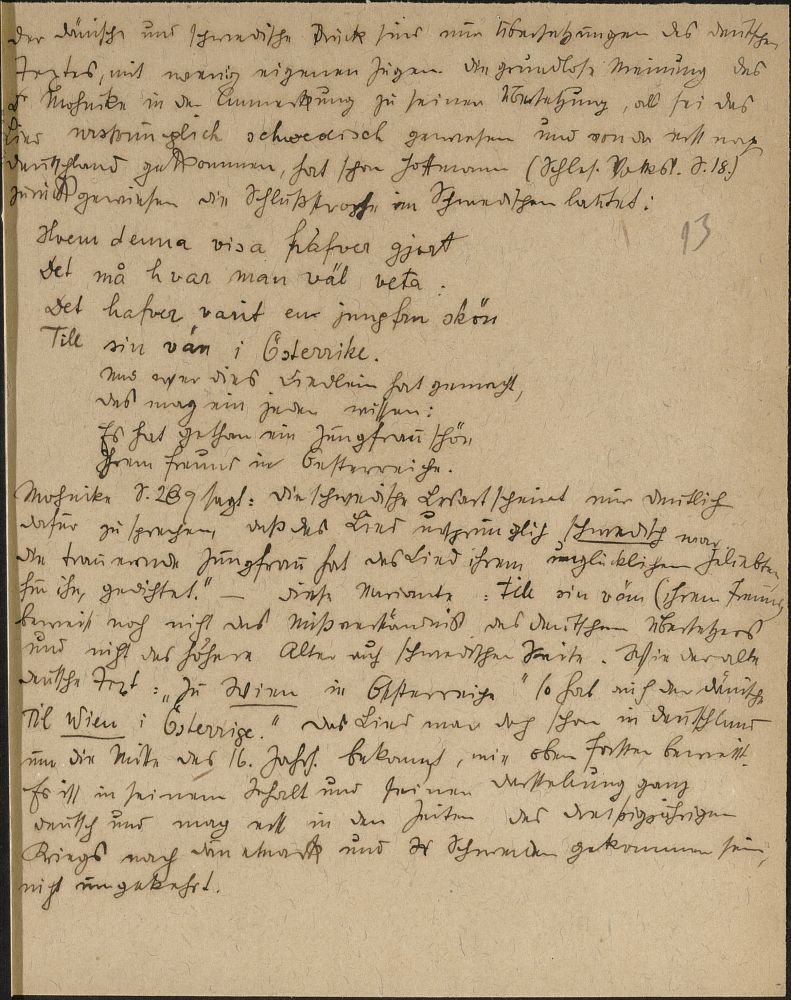 Der dänische und schwedische Druck sind nur Übersetzungen des deutschen
Textes, mit wenig eigenen Zügen. Die grundlose Meinung des
Dr Mohnike in der Anmerkung zu seiner Übersetzung, als sei das
Lied ursprünglich schwedisch gewesen und von da erst nach
Deutschland gekommen, hat schon Hoffmann (Schles. Volksl. S. 18.)
zurückgewiesen die Schlußstrophe im Schwedischen lautet:
13
Hvem denna visa häfver gjort
Det må hvar man väl veta.
Det hafver varit en jungfru skön
Till sin vän i Österrike.
Und wer dies Liedlein hat gemacht,
das mag ein jeder wissen:
Es hat gethan ein Jungfrau schön
Ihrem Freund in Oesterreiche.
Mohnike S. 289 sagt: die schwedische Lesart scheint mir deutlich
dafür zu sprechen, daß das Lied ursprünglich schwedisch war
die trauernde Jungfrau hat das Lied ihrem unglücklichen Geliebten
für ihn, gedichtet." — diese Variante: till sin vän (ihrem Freund)
beweist noch nicht das Mißverständnis des deutschen Übersetzers
und nicht das höhere Alter auf schwedischer Seite. Wie der alte
deutsche Text: „zu Wien in Oesterreiche" so hat auch der dänische
Til Wien i Österrige." Das Lied war doch schon in Deutschland
um die Mitte des 16. Jahrh. bekannt, wie oben Forster beweist.
Es ist in seinem Gehalt und seiner Darstellung ganz
deutsch und mag erst in den Zeiten des dreißigjährigen
Kriegs nach Dänemark und Schweden gekommen sein,
nicht umgekehrt.